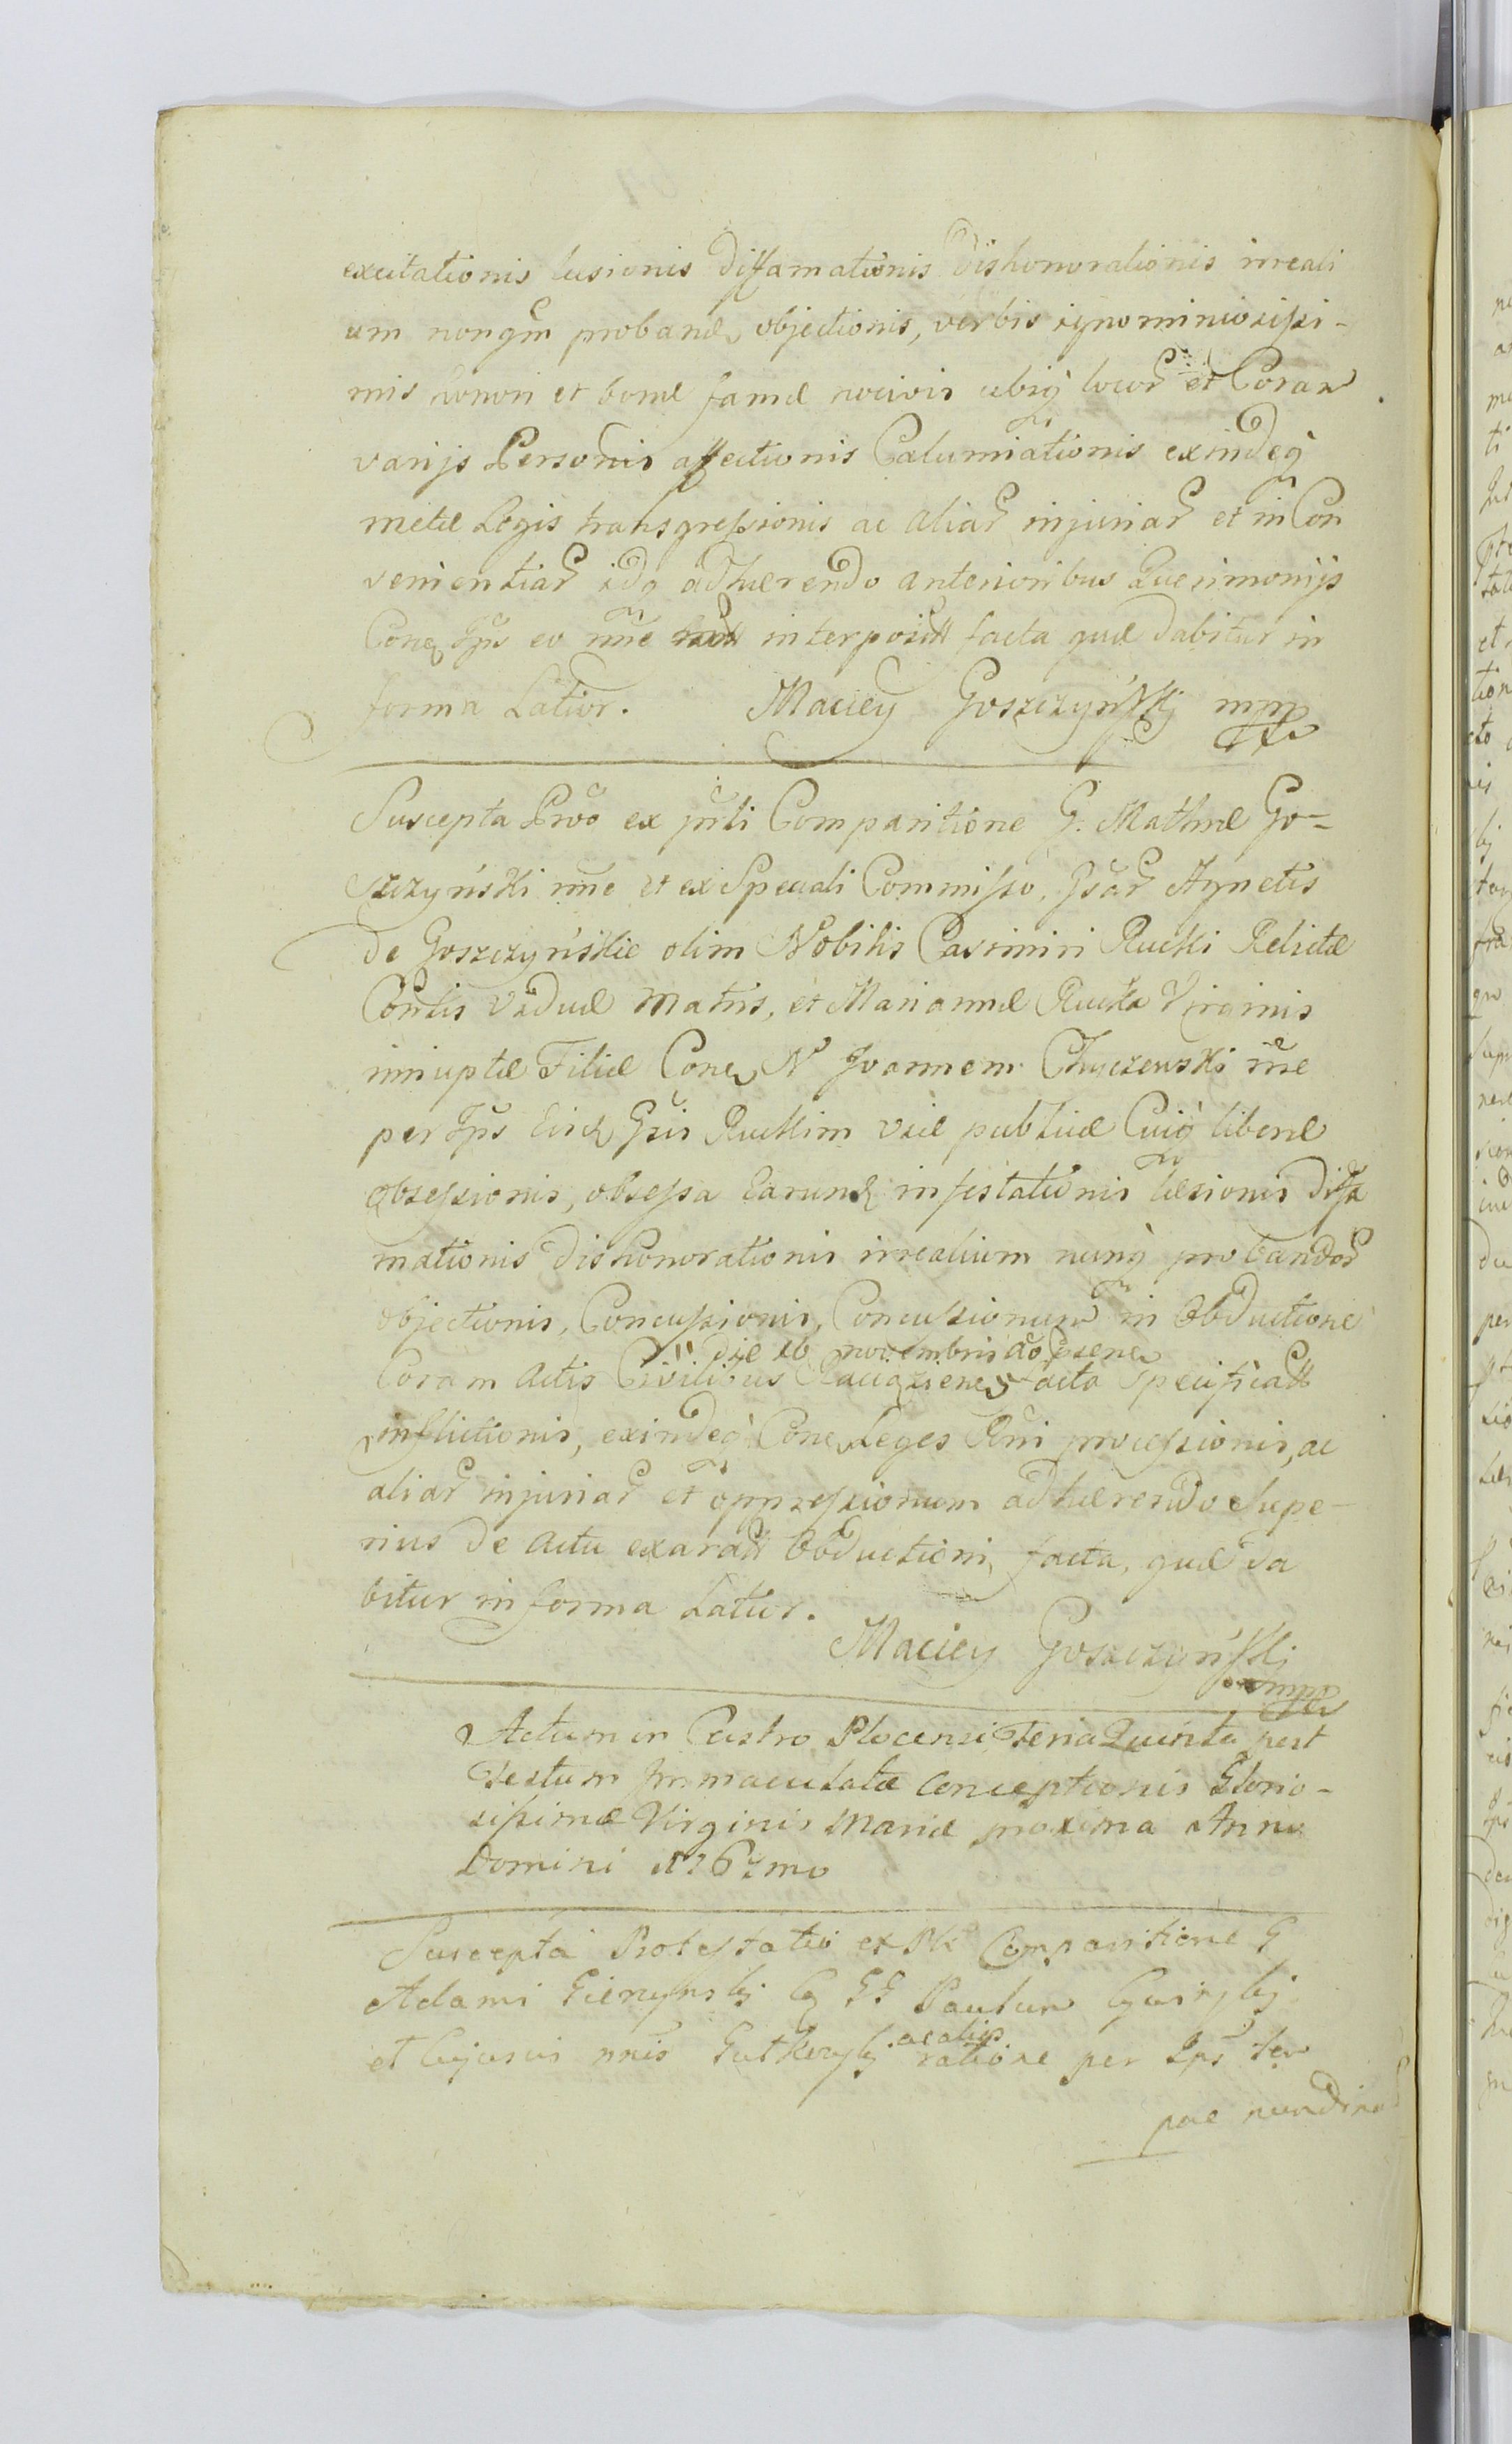 excitationis læsionis diffamationis dishonorationis irreali
um nonqm proband objectionis, verbis ignominiosissi-
mis honori et bonæ famæ nocivis ubiq locor et Coram
varijs Personis affectionis Calumiationis exindeq
metæ Legis transgressionis ac aliar injuriar et in Con
venientiar idq adhærendo anterioribus Querimonijs
Con Ips eo nne interposit facta quæ dabitur in
forma Latior. Maciey Goszczyński mmp
Suscepta Pro ex prli Comparitione G. Mathiæ Go-
szczyński nne et ex Speciali Commisso, Agnetis
de Goszczyńskie olim Nobilis Casimiri Rucki Relictæ
Contis viduæ Matris, et Mariannæ Rucka Virginis
innuptæ Filiæ Con N Joannem
per Ips Gris Ruckim viæ publicæ Cuiq liberæ
obsessionis, obsessa Earund infestationis læsionis diffa
mationis dishonorationis irrealium nunq probandor
objectionis, Concussionis, Concussionum in Obductione
die 16 novembris ao Præsen
Coram Actis Civilibus Raciazienes facta Specificatt
inflictionis, exindeq Con Leges Rni processionis, ac
aliar injuriar et oppressionum adhærendo Supe-
rius de Actu exaratt Obductioni, facta, quæ da
bitur in forma Latior.
Maciey Goszczyński
mmp
Actum in Castro Plocensi Feria Quinta post
Festum Immaculatæ Conceptionis Glorio-
sissimæ Virginis Mariæ proxima Anno
Domini 1767mo
Suscepta Protestatio ex Pli Comparitione G
Adami GG Paulum
et Cujusvis nnis ratione per Ips
ac alijs
pore nundinar